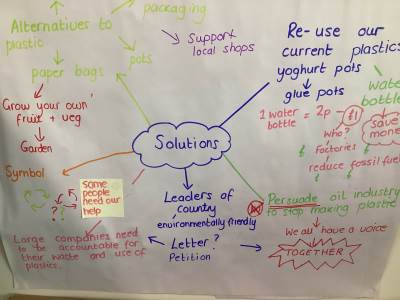 packaging
Alternatives to
plastic
pots
paper bags
Support
local shops
Re-use our
current plastics
yoghurt pots
glue pots
water
bottle
1 water
bottle = 2p – £1
save
money
who?
Factories
reduce fossil fuel
Grow your own
fruit + veg
Garden
Solutions
Symbol
Some
people
need our
help
? ?
Leaders of
country
environmentally friendly
Letter?
Petition
Persuade oil industry
to stop making plastic
We all have a voice
TOGETHER
Large companies need
to be accountable for
their waste and use of
plastics.